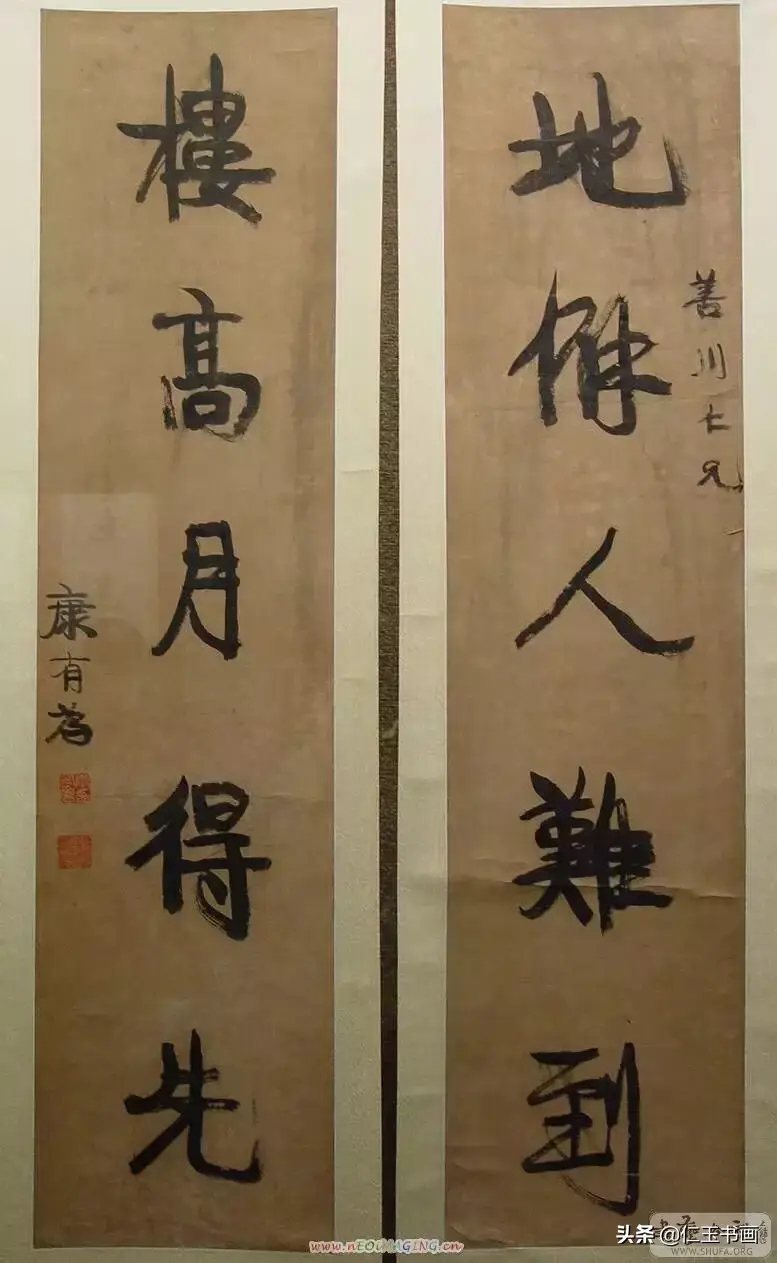 地僻人難到
善川仁兄
樓高月得先
康有為
www.nEOiMAGiNG.cn
头条@仁玉书画
WWW.SHUFA.ORG